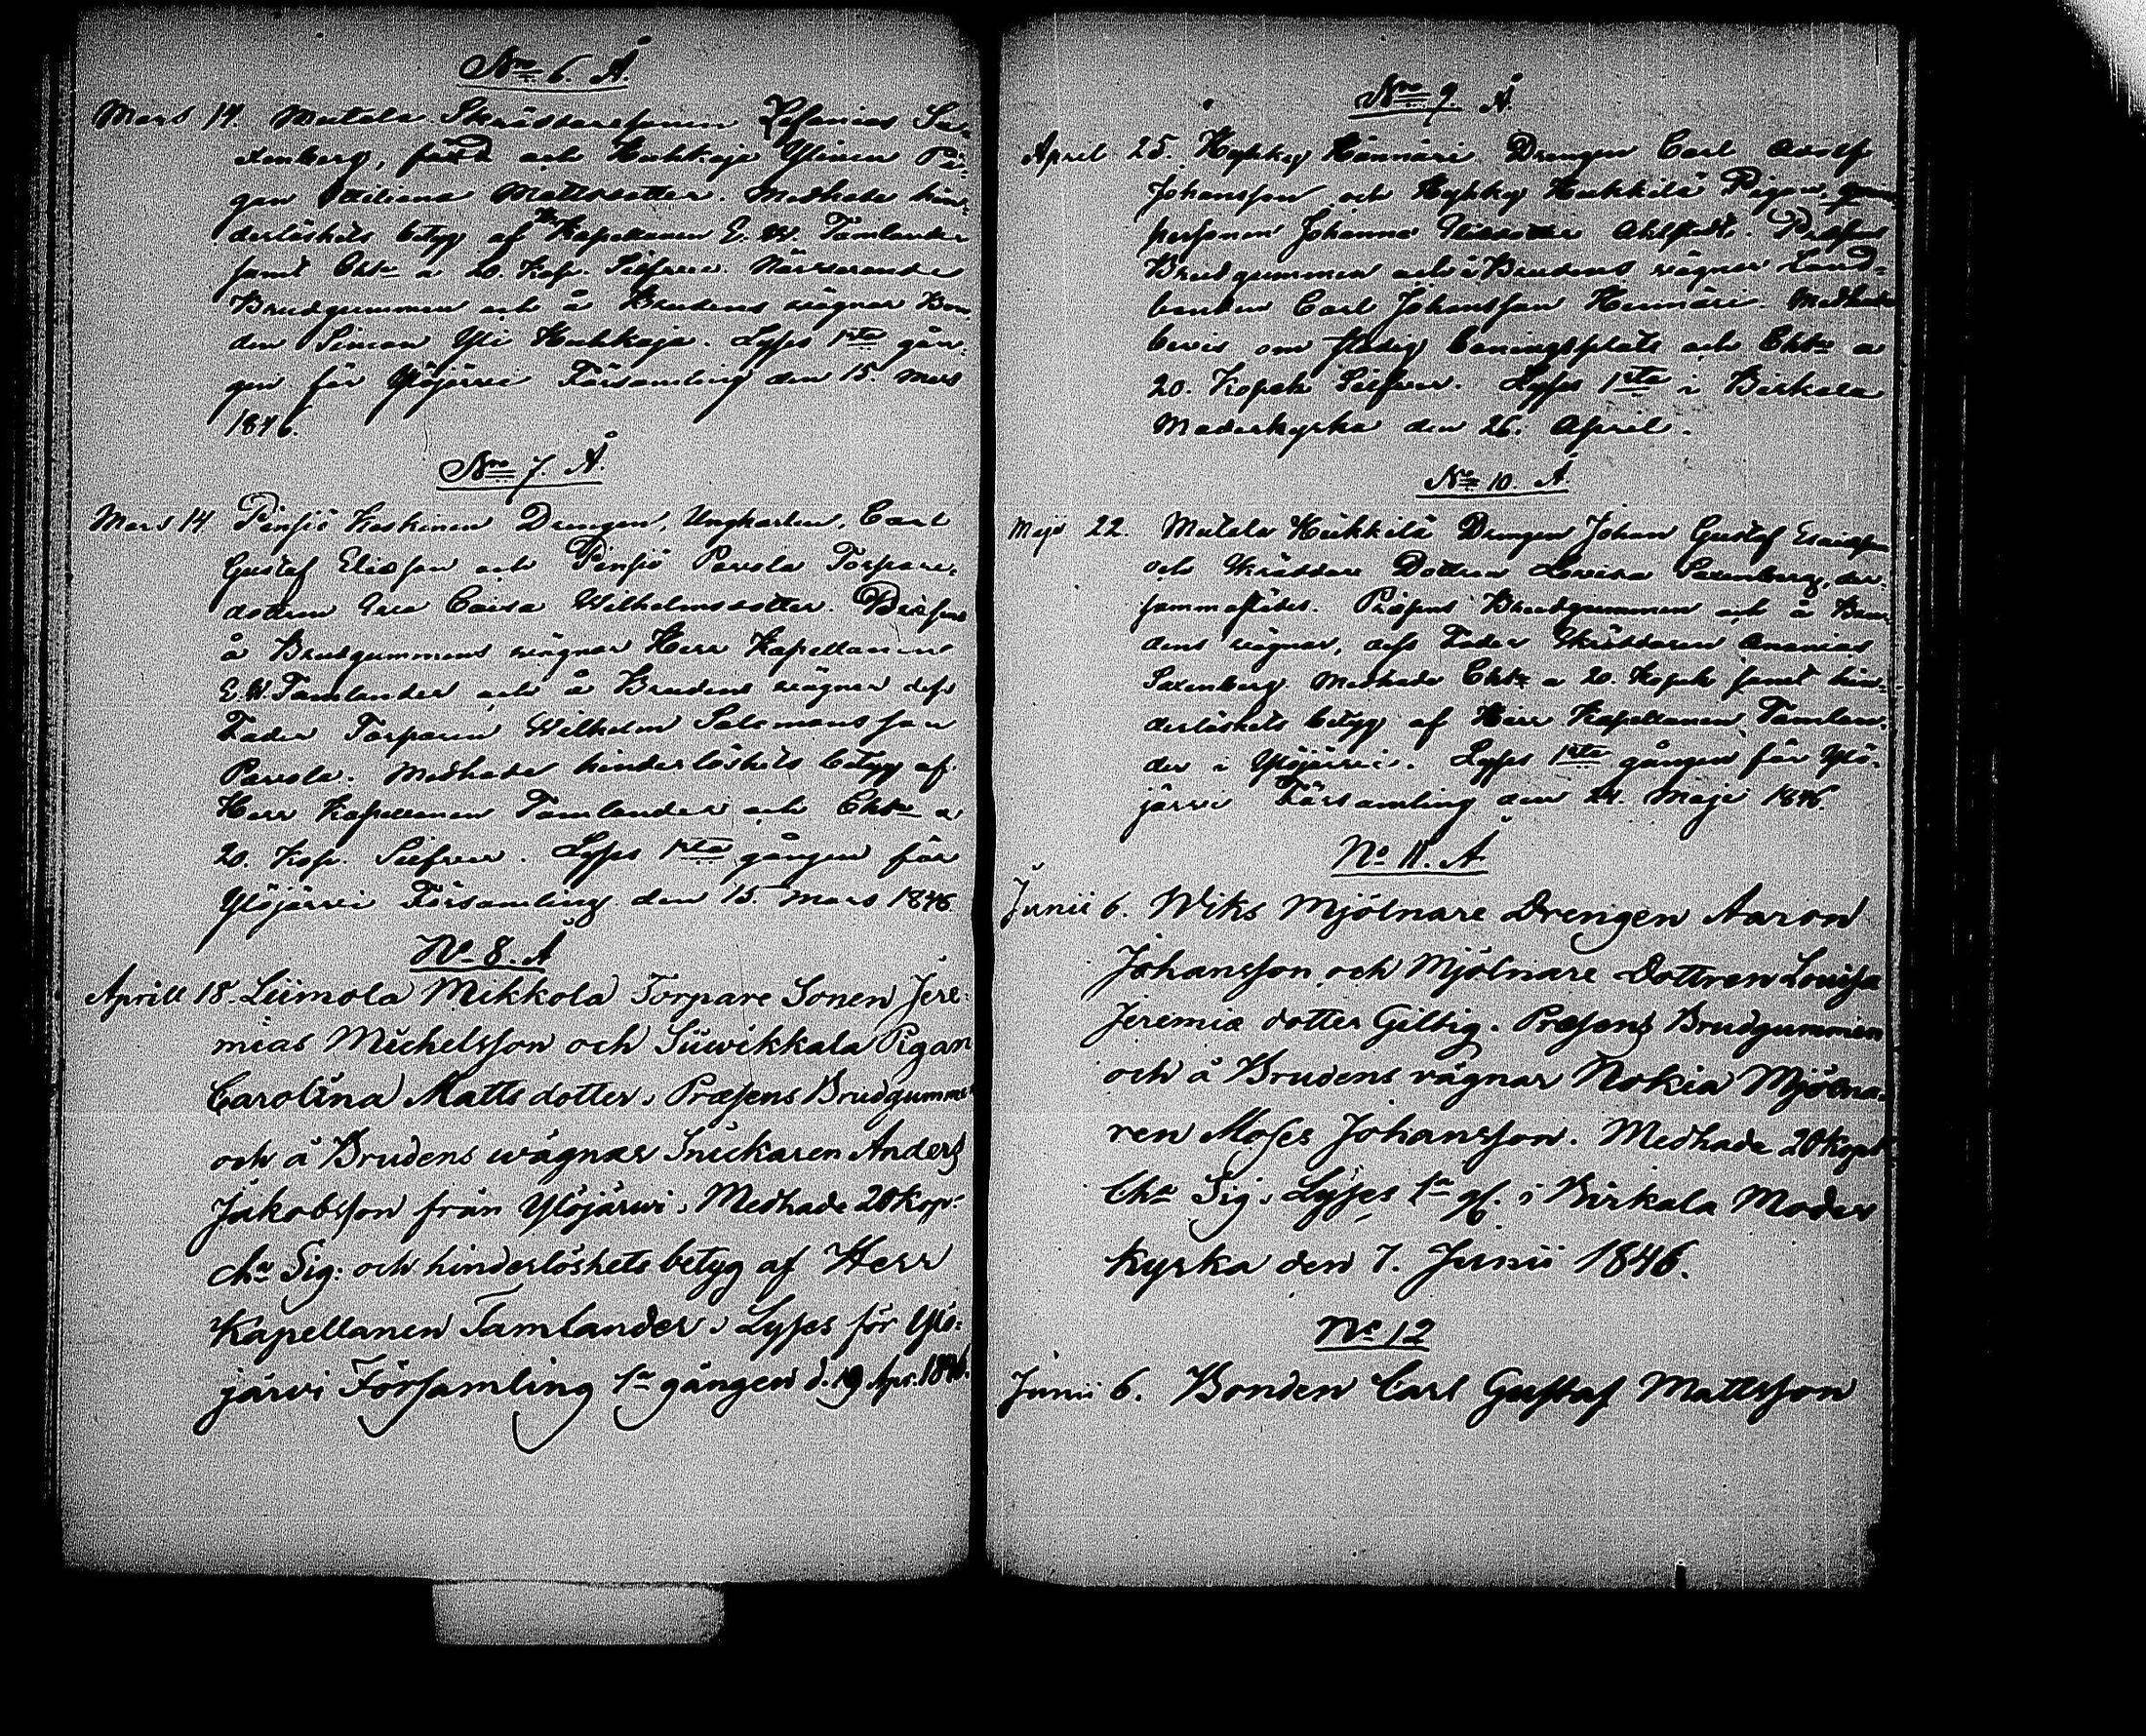 Nro 6. Å.
Mars 14. Mutala Skräddaresonen Zefanias Sa-
xenberg, född och Huhkaja Ylinen Pi-
gan Ottiliana Mattsdotter. Medhade hin-
derlöshets betyg af Hr Kapellanen E. W. Tamlander
samt Chte a 20. Kop. Silfver. Närvarande
Brudgummen och å Brudens vägnar Bon-
den Simon Yli Huhkaja. Lyses 1sta gån-
gen för Ylöjärvi Församling den 15. Mars
1846.
Nro 7. Å.
Mars 14 Pinsiö Keskinen Drengen, Ungkarlen, Carl
Gustaf Eliasson och Pinsiö Parola Torpare-
dottren Eva Caisa Wilhelmsdotter. Præsens
å Brudgummens vägnar Herr Kapellanen
E. W. Tamlander och å Brudens vägnar dess
Fader Torparen Wilhelm Salomonsson
Parola. Medhade hinderlöshets betyg af
Herr Kapellanen Tamlander och Chte a
20. Kop. Silfver. Lyses 1sta gången för
Ylöjärvi Församling den 15. Mars 1846
No 8. Å
Aprill 18. Liimola Mikkola Torpare Sonen Jere-
mias Michelsson och Siiwikkala Pigan
Carolina Matts dotter, Præsens Brudgumme
och å Brudens wägnar Snickaren Anders
Jakobsson från Ylöjärwi, Medhade 20 kop:
cha Sig: och hinderlöshets betyg af Herr
Kapellanen Tamlander, Lyses för Ylö-
järwi Församling 1a gången d. 19 Apr. 1846.
Nro 9 Å.
April 25. Hyhky Hannäri Drengen Carl Adolf
Johansson och Hyhky Heikkilä Pigan, qvins
personen Johanna Ahlstedt. Præsens
Brudgummen och å Brudens vägnar Land-
bonden Carl Johansson Hannäri. Medhade
bevis om flasig boningsplats och Chte a
20. Kopek Silfver. Lyses 1sta i Birkala
Moderkyrka den 26. April.
No 10. Å
Maji 22. Mutala Heikkilä Drengen Johan Gustaf Esaiasson
och Skräddare Dottren Lovisa Saxenberg, der-
sammastädes. Præsens Brudgummen och å Bru-
dens vägnar, dess Fader Skräddaren Ananias
Saxenberg. Medhade Chte a 20. Kopek samt hin-
derlöshets betyg af Herr Kapellanen Tamlan-
der i Ylöjärvi. Lyses 1sta gången för Ylö-
järvi Församling den 24. Maji 1846.
No 11. Å
Junii 6. Wiks Mjölnare Drengen Aaron
Johansson och Mjölnare Dottren Lovisa
Jeremiæ dotter Gilbig. Præsens Brudgummen
och å Brudens vägnar Nokia Mjölna-
ren Moses Johansson. Medhade 20 kop
Cha Sig, Lyses 1a g. i Birkala Moder
kyrka den 7. Junii 1846.
No 12
Junii 6. Bonden Carl Gustaf Mattsson